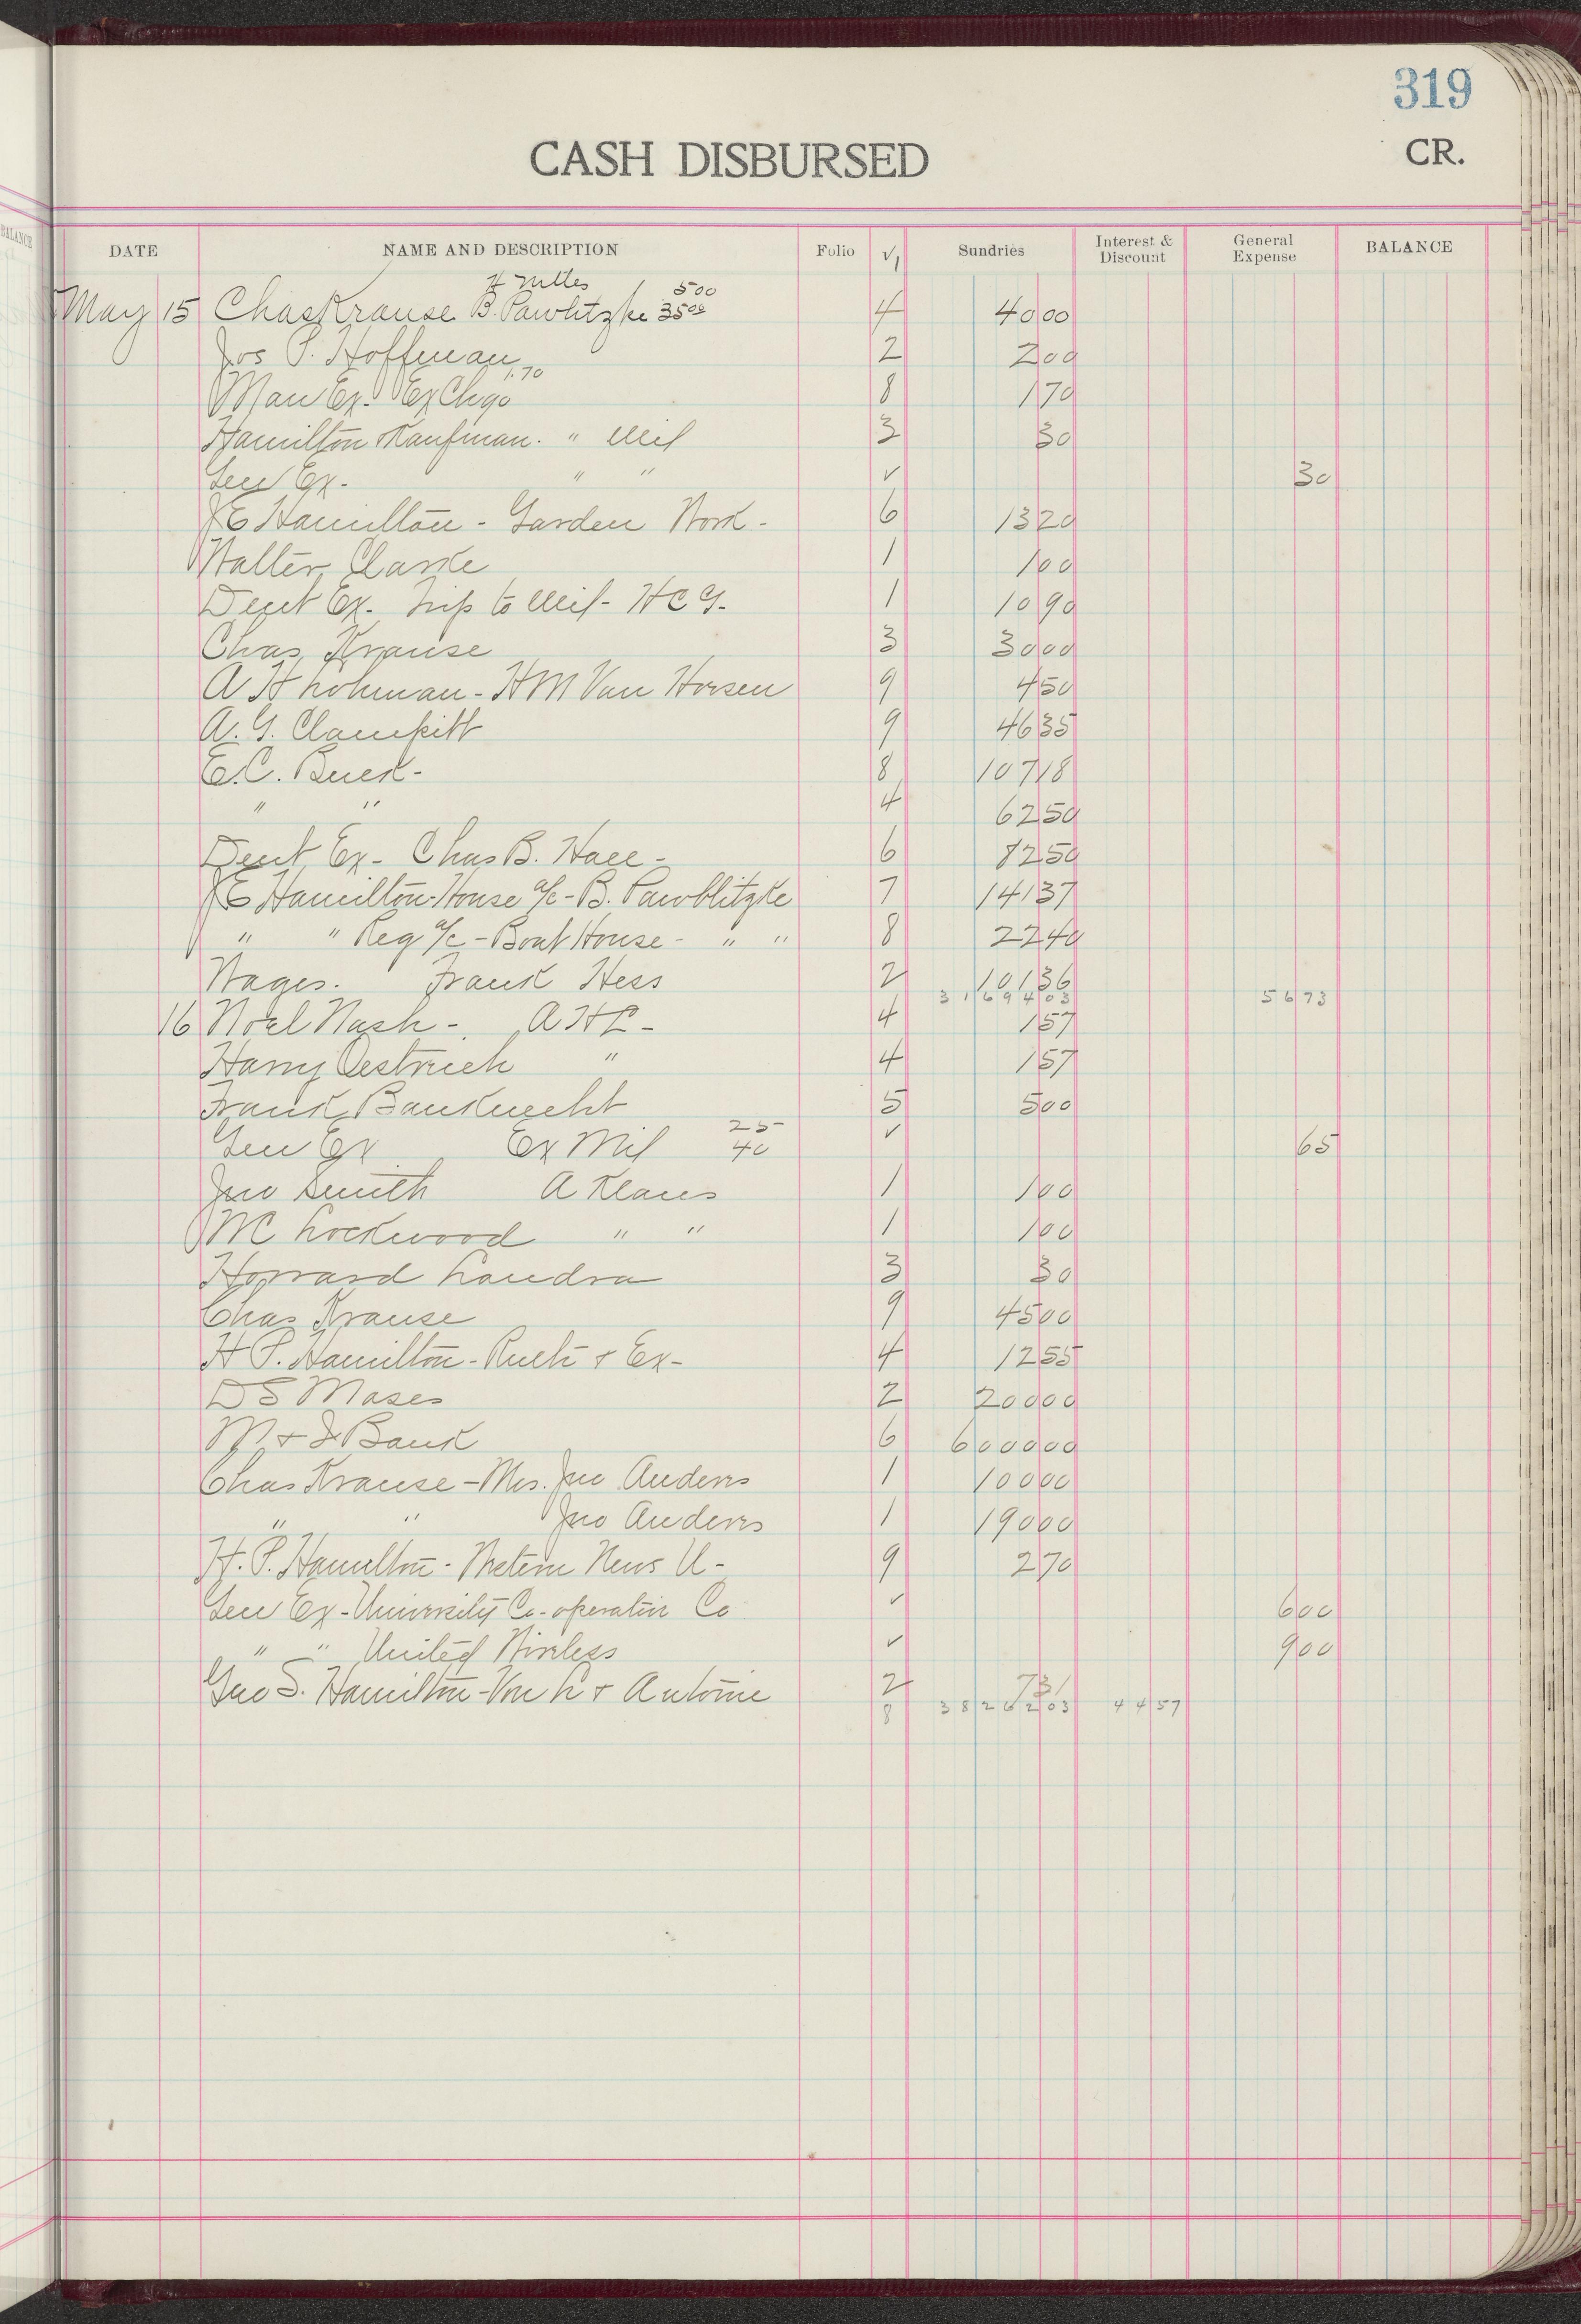 319
CASH DISBURSED CR.
BALANCE
DATE NAME AND DESCRIPTION Folio √1 Sundries Interest & Discount General Expense BALANCE
H 500
May 15 Chas Krause B. Pawlitzke 3500 4 4000
Jos P. Hoffman 2 200
Man Ex. Ex Chgo 1.70 8 170
Hamilton & Kaufman. " Mil 3 30
Gen Ex. " " ✓ 30
JE Hamilton - Garden Work - 6 1320
Walter Clarke 1 100
Dent Ex. Trip to Mil - HCG. 1 1090
Chas Krause 3 3000
A H Lohman - HM Van Horsen 9 450
A. G. Clampitt 9 4635
E.C. Buck - 8 10718
" " 4 6250
Dent Ex - Chas B. Hall - 6 8250
JE Hamilton - House a/c - B. Pawblitzke 7 14137
" " Reg a/c - Boat House - " " 8 2240
Wages. Frank Hess 2 10136
3169403 5673
16 Noel Nash - AHL - 4 157
Harry Oestrich " 4 157
Frank Bauknecht 5 500
25
Gen Ex Ex Mil 40 ✓ 65
Jno Smith A Klaus 1 100
WC Lockwood " " 1 100
Howard Landra 3 30
Chas Krause 9 4500
H P. Hamilton - & Ex - 4 1255
D S Moses 2 20000
M & I Bank 6 600000
Chas Krause - Mrs. Jno Anders 1 10000
" " Jno Anders 1 19000
H. P. Hamilton - Western News U - 9 270
Gen Ex - University Co-operative Co ✓ 600
" " United Wireless ✓ 900
Geo S. Hamilton - Von L & Antoine 2 731
8 3826203 4457